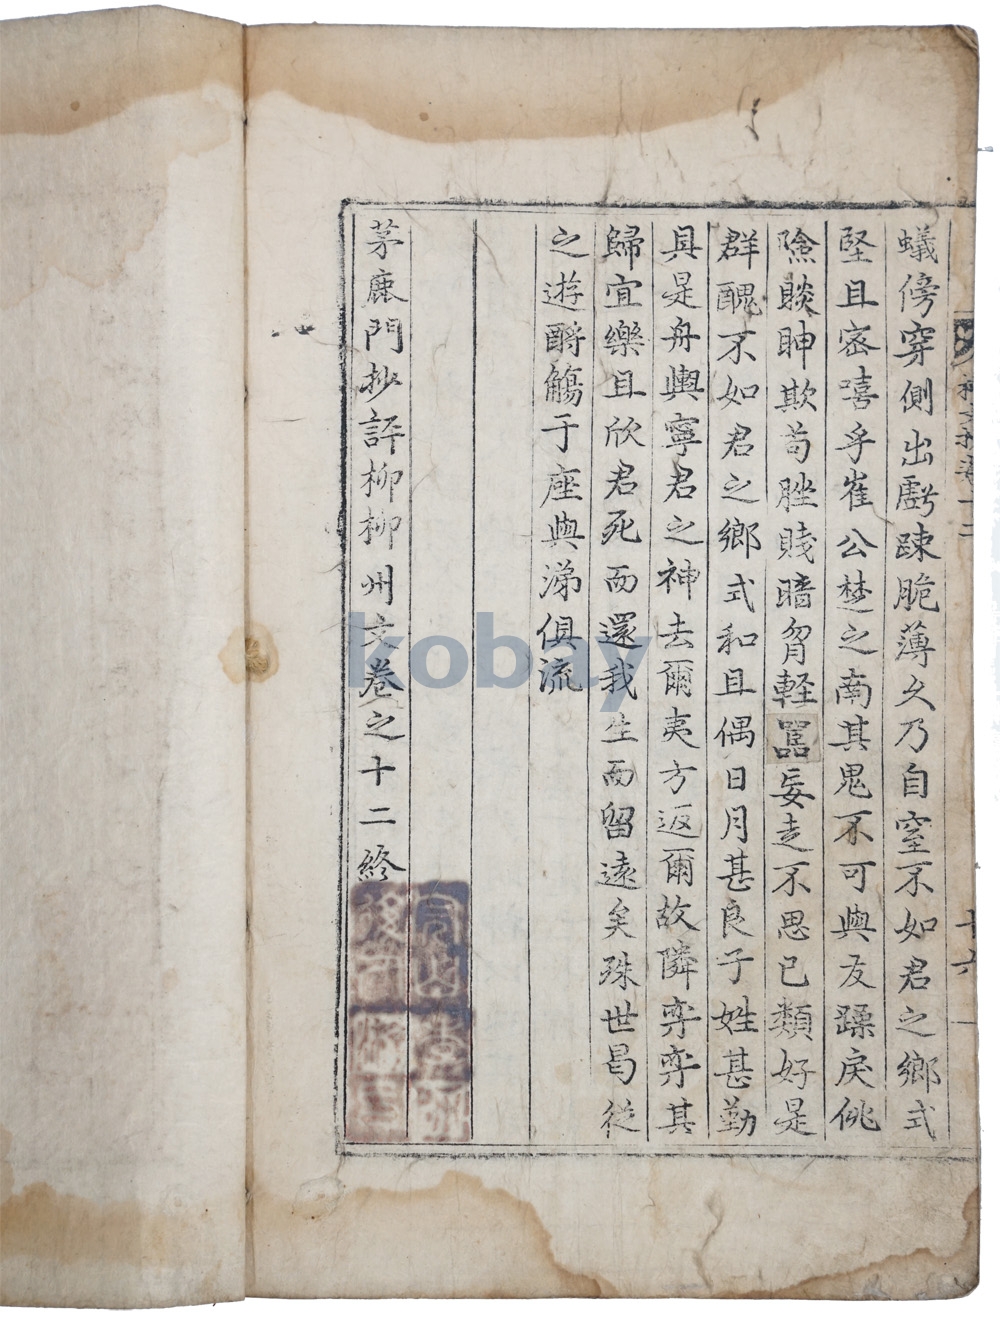 蟻傍穿側出虧疎脆薄久乃自窒不如君之鄉式
堅且密嘻乎崔公楚之南其鬼不可與友躁戾佻
險睒眒欺苟脞賤暗胷輕嚚妄走不思己類好是
群醜不如君之鄉式和且偶日月甚良子姓甚勤
具是舟輿寧君之神去爾夷方返爾故隣弈弈其
歸宜樂且欣君死而還我生而留遠矣殊世曷從
之遊酹觴于座與涕俱流
茅鹿門抄評柳柳州文卷之十二終
十六
kobay